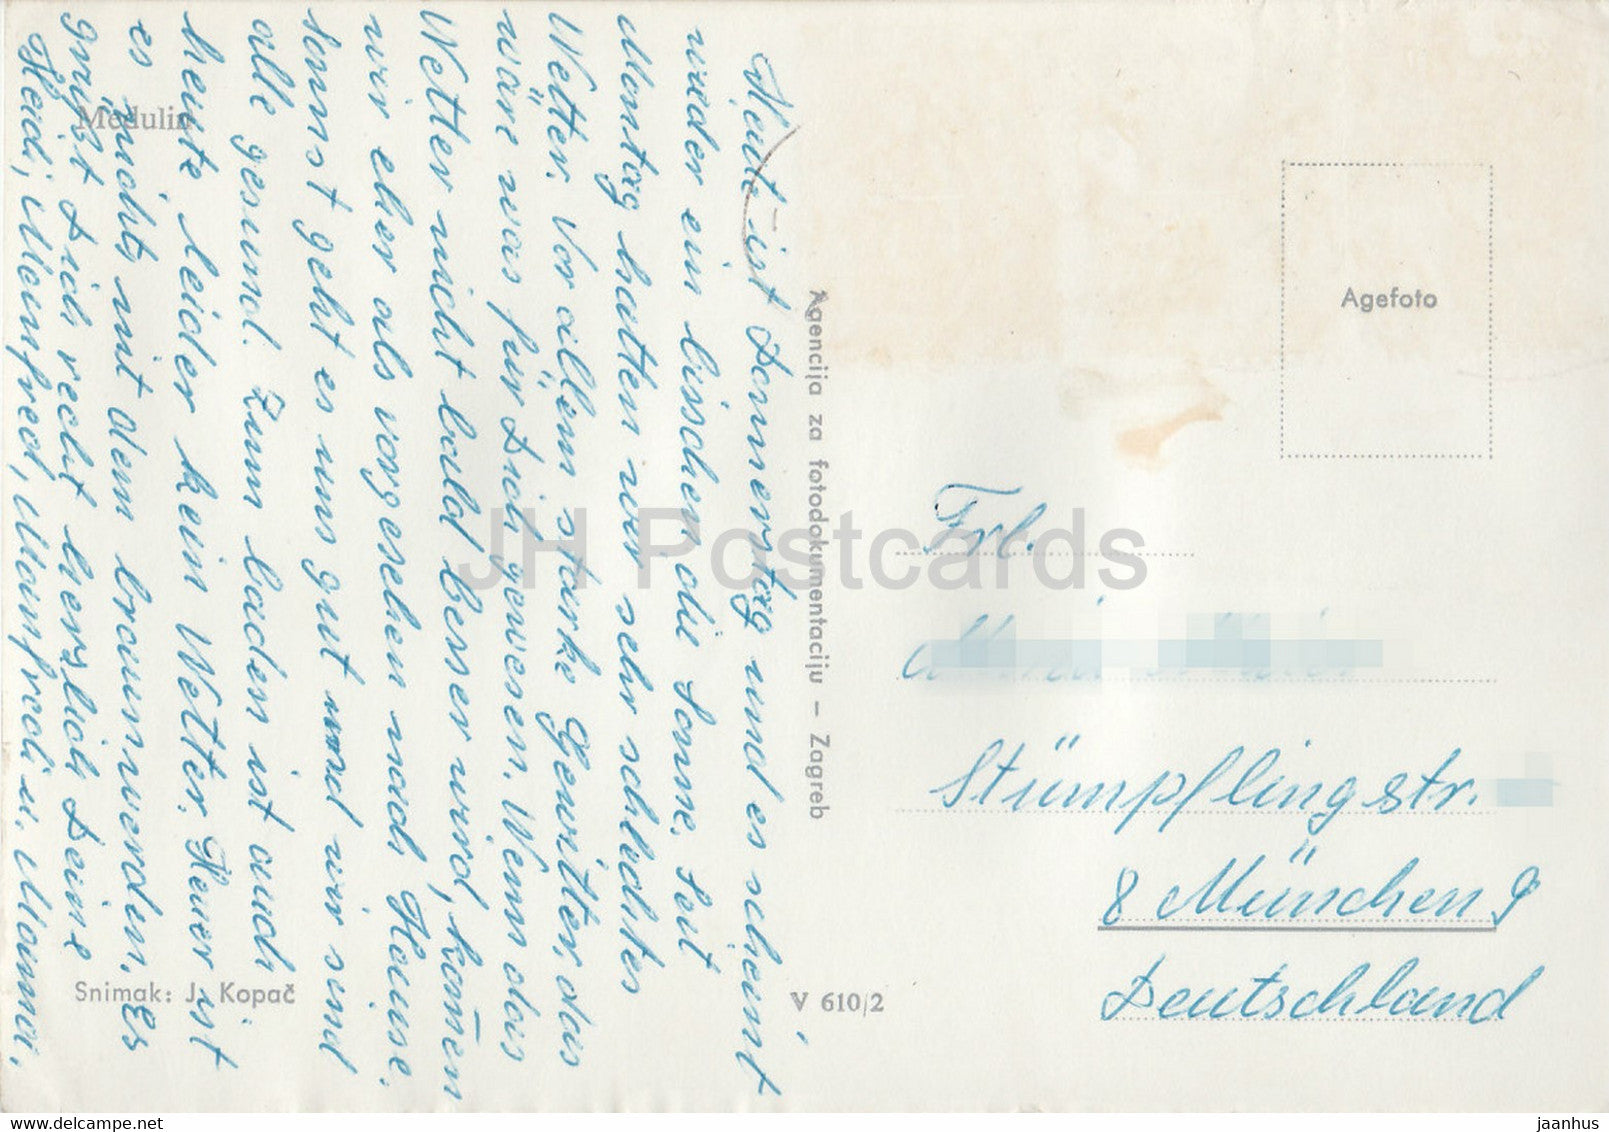 Heut ist Donnerstag und es scheint
wieder ein bisschen die Sonne. Seit
Montag hatten wir sehr schlechtes
Wetter. Vor allem starke Gewitter, das
wäre was für Dich gewesen. Wenn das
Wetter nicht bald besser wird, kom̅en
wir eher als vorgesehen nach Hause.
Sonst geht es uns gut und wir sind
alle gesund. Zum baden ist auch
heute leider kein Wetter. Heuer ist
es nichts mit dem braunwerden. Es
grüsst Dich recht herzlich Deine
Heidi, Meinfred, Manfred u. Mama.
Medulin
Snimak: J. Kopač
Agencija za fotodokumentaciju – Zagreb
V 610/2
Agefoto
Frl.
Stümpflingstr.
8 München 9
Deutschland
JH Postcards
delcampe.net
jaanhus